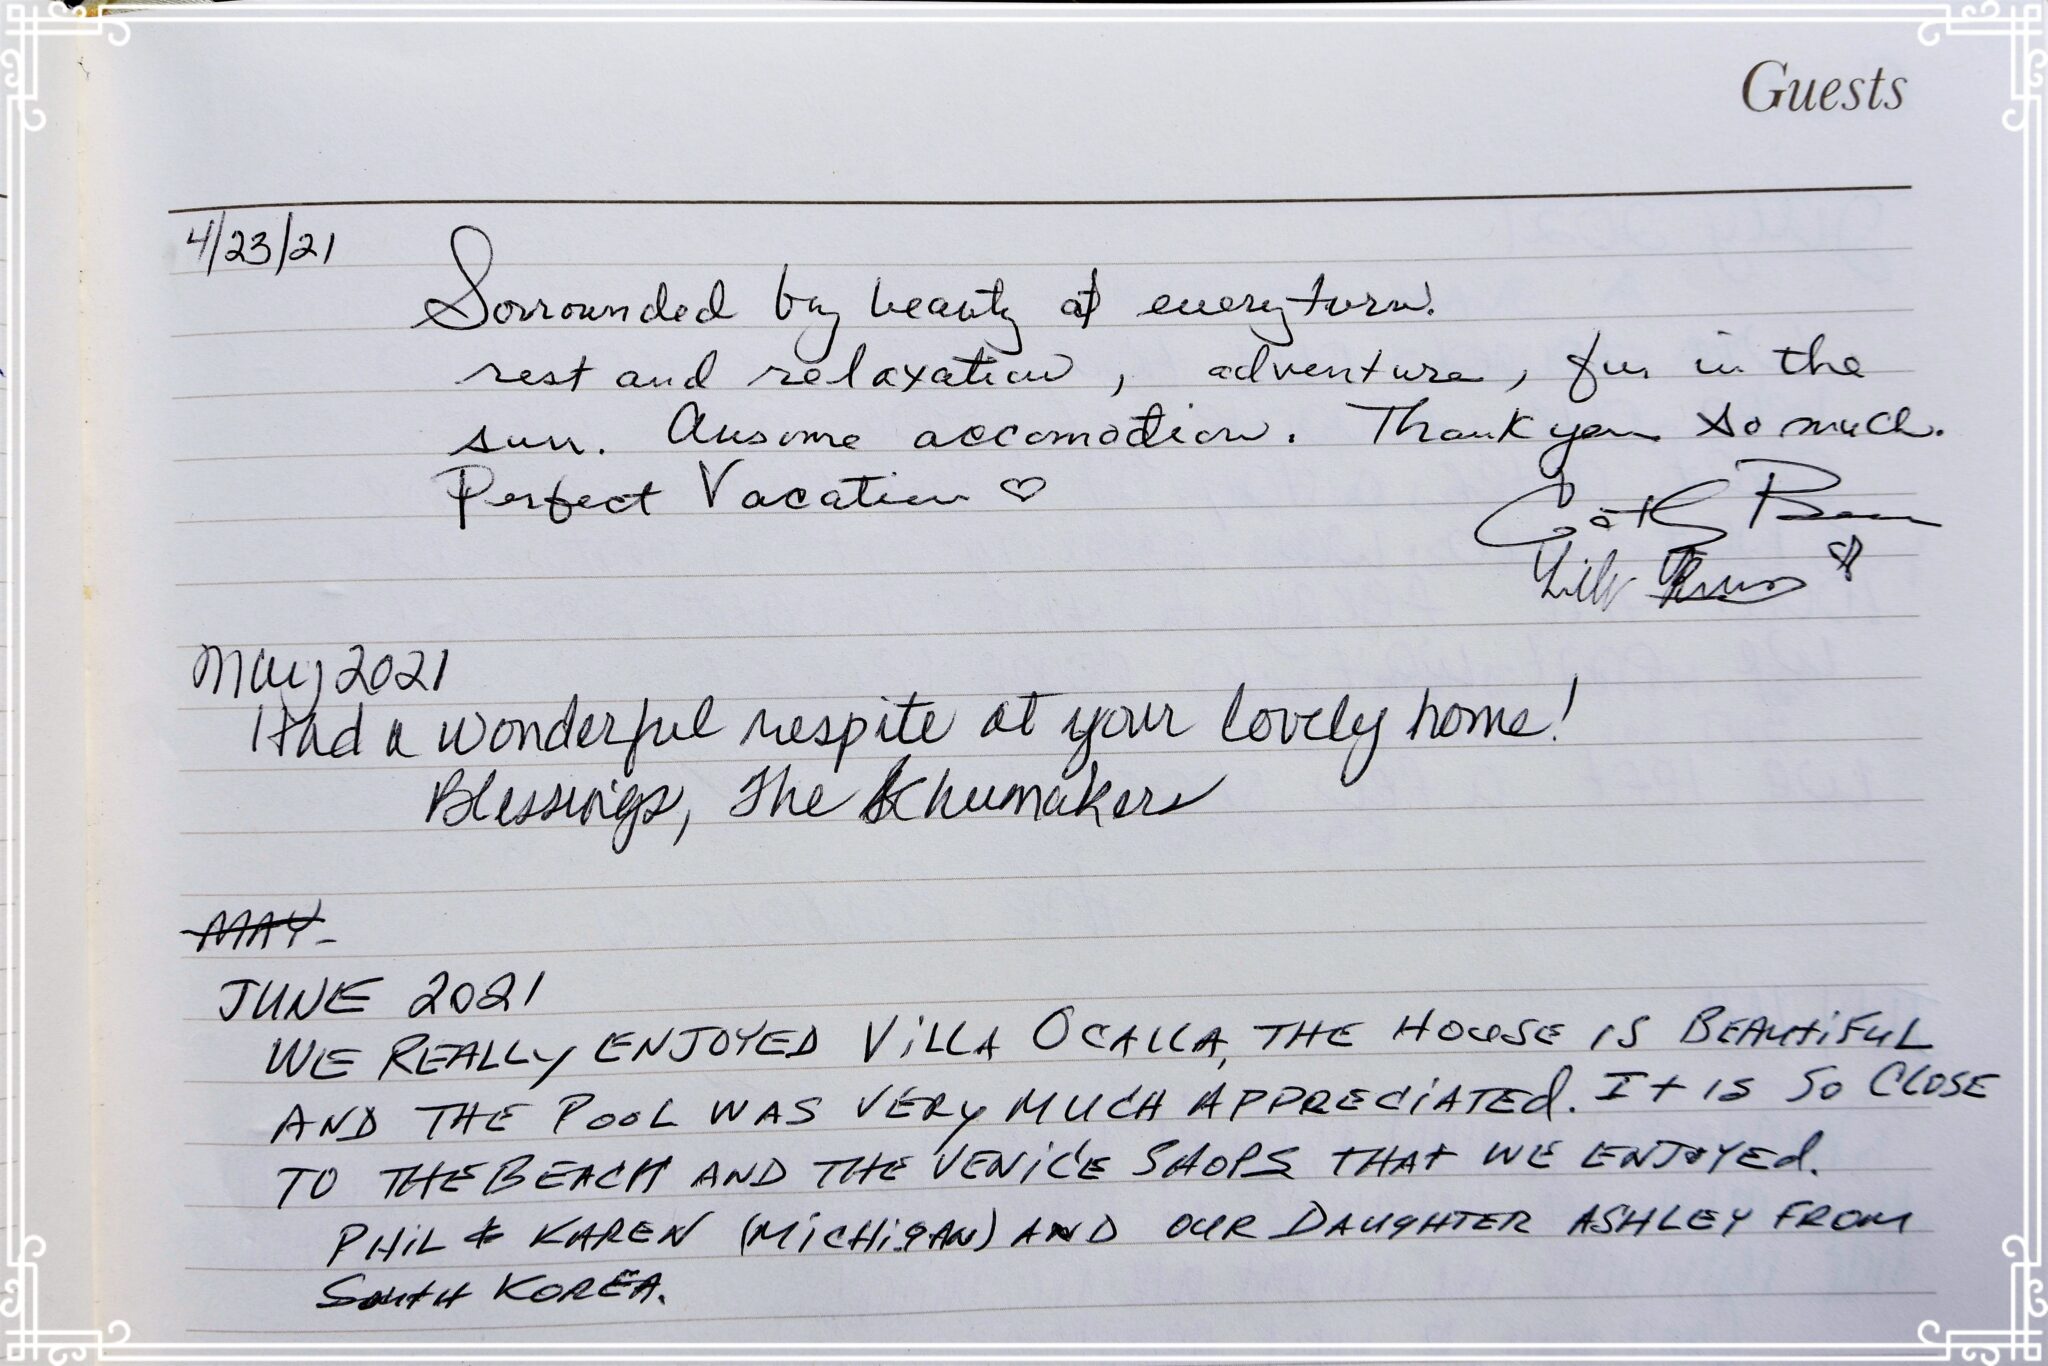 Guests
4/23/21
Sorrounded by beauty at every turn.
rest and relaxation, adventure, fun in the
sun. Ausome accomodtion. Thank you so much.
Perfect Vacation ♡
Cathy
May 2021
Had a wonderful respite at your lovely home!
Blessings, The Schumakers
MAY-
JUNE 2021
WE REALLY ENJOYED VILLA OCALLA, THE HOUSE IS BEAUTIFUL
AND THE POOL WAS VERY MUCH APPRECIATED. IT IS SO CLOSE
TO THE BEACH AND THE VENICE SHOPS THAT WE ENJOYED.
PHIL & KAREN (MICHIGAN) AND OUR DAUGHTER ASHLEY FROM
SOUTH KOREA.